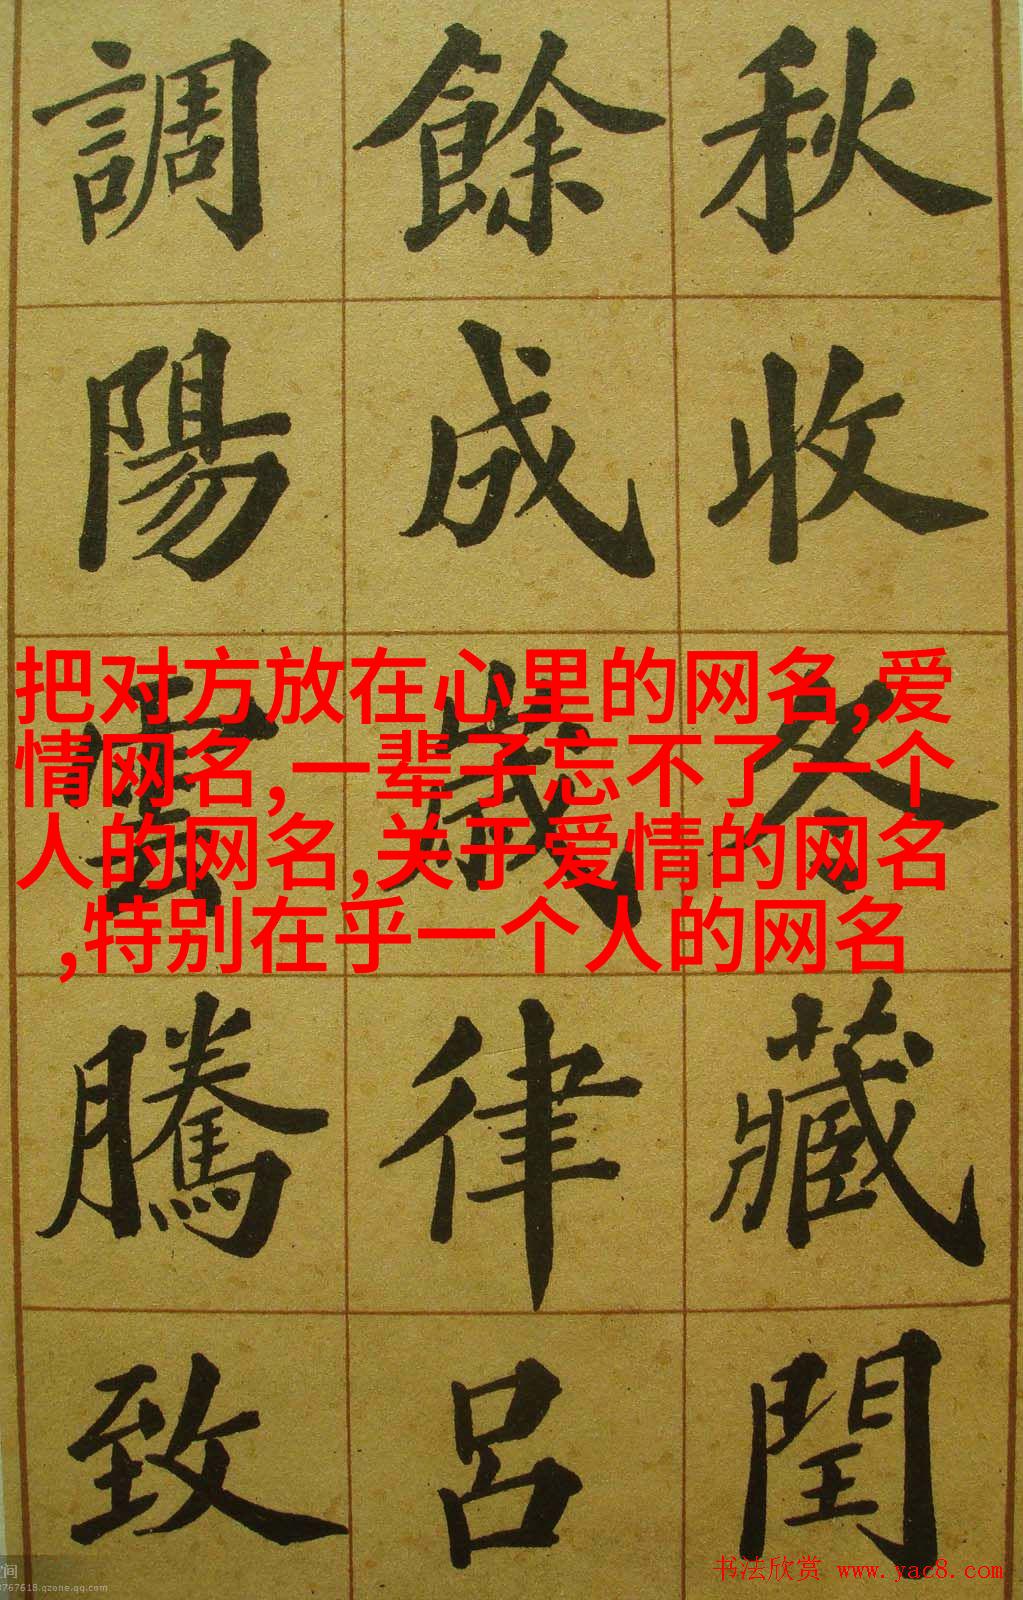 秋收冬藏閏
餘成歲律呂
調陽雲騰致
把对方放在心里的网名,爱
情网名,一辈子忘不了一个
人的网名,关于爱情的网名
,特别在乎一个人的网名
书法欣赏 www.yac8.com
间
767618.qzone.qq.com